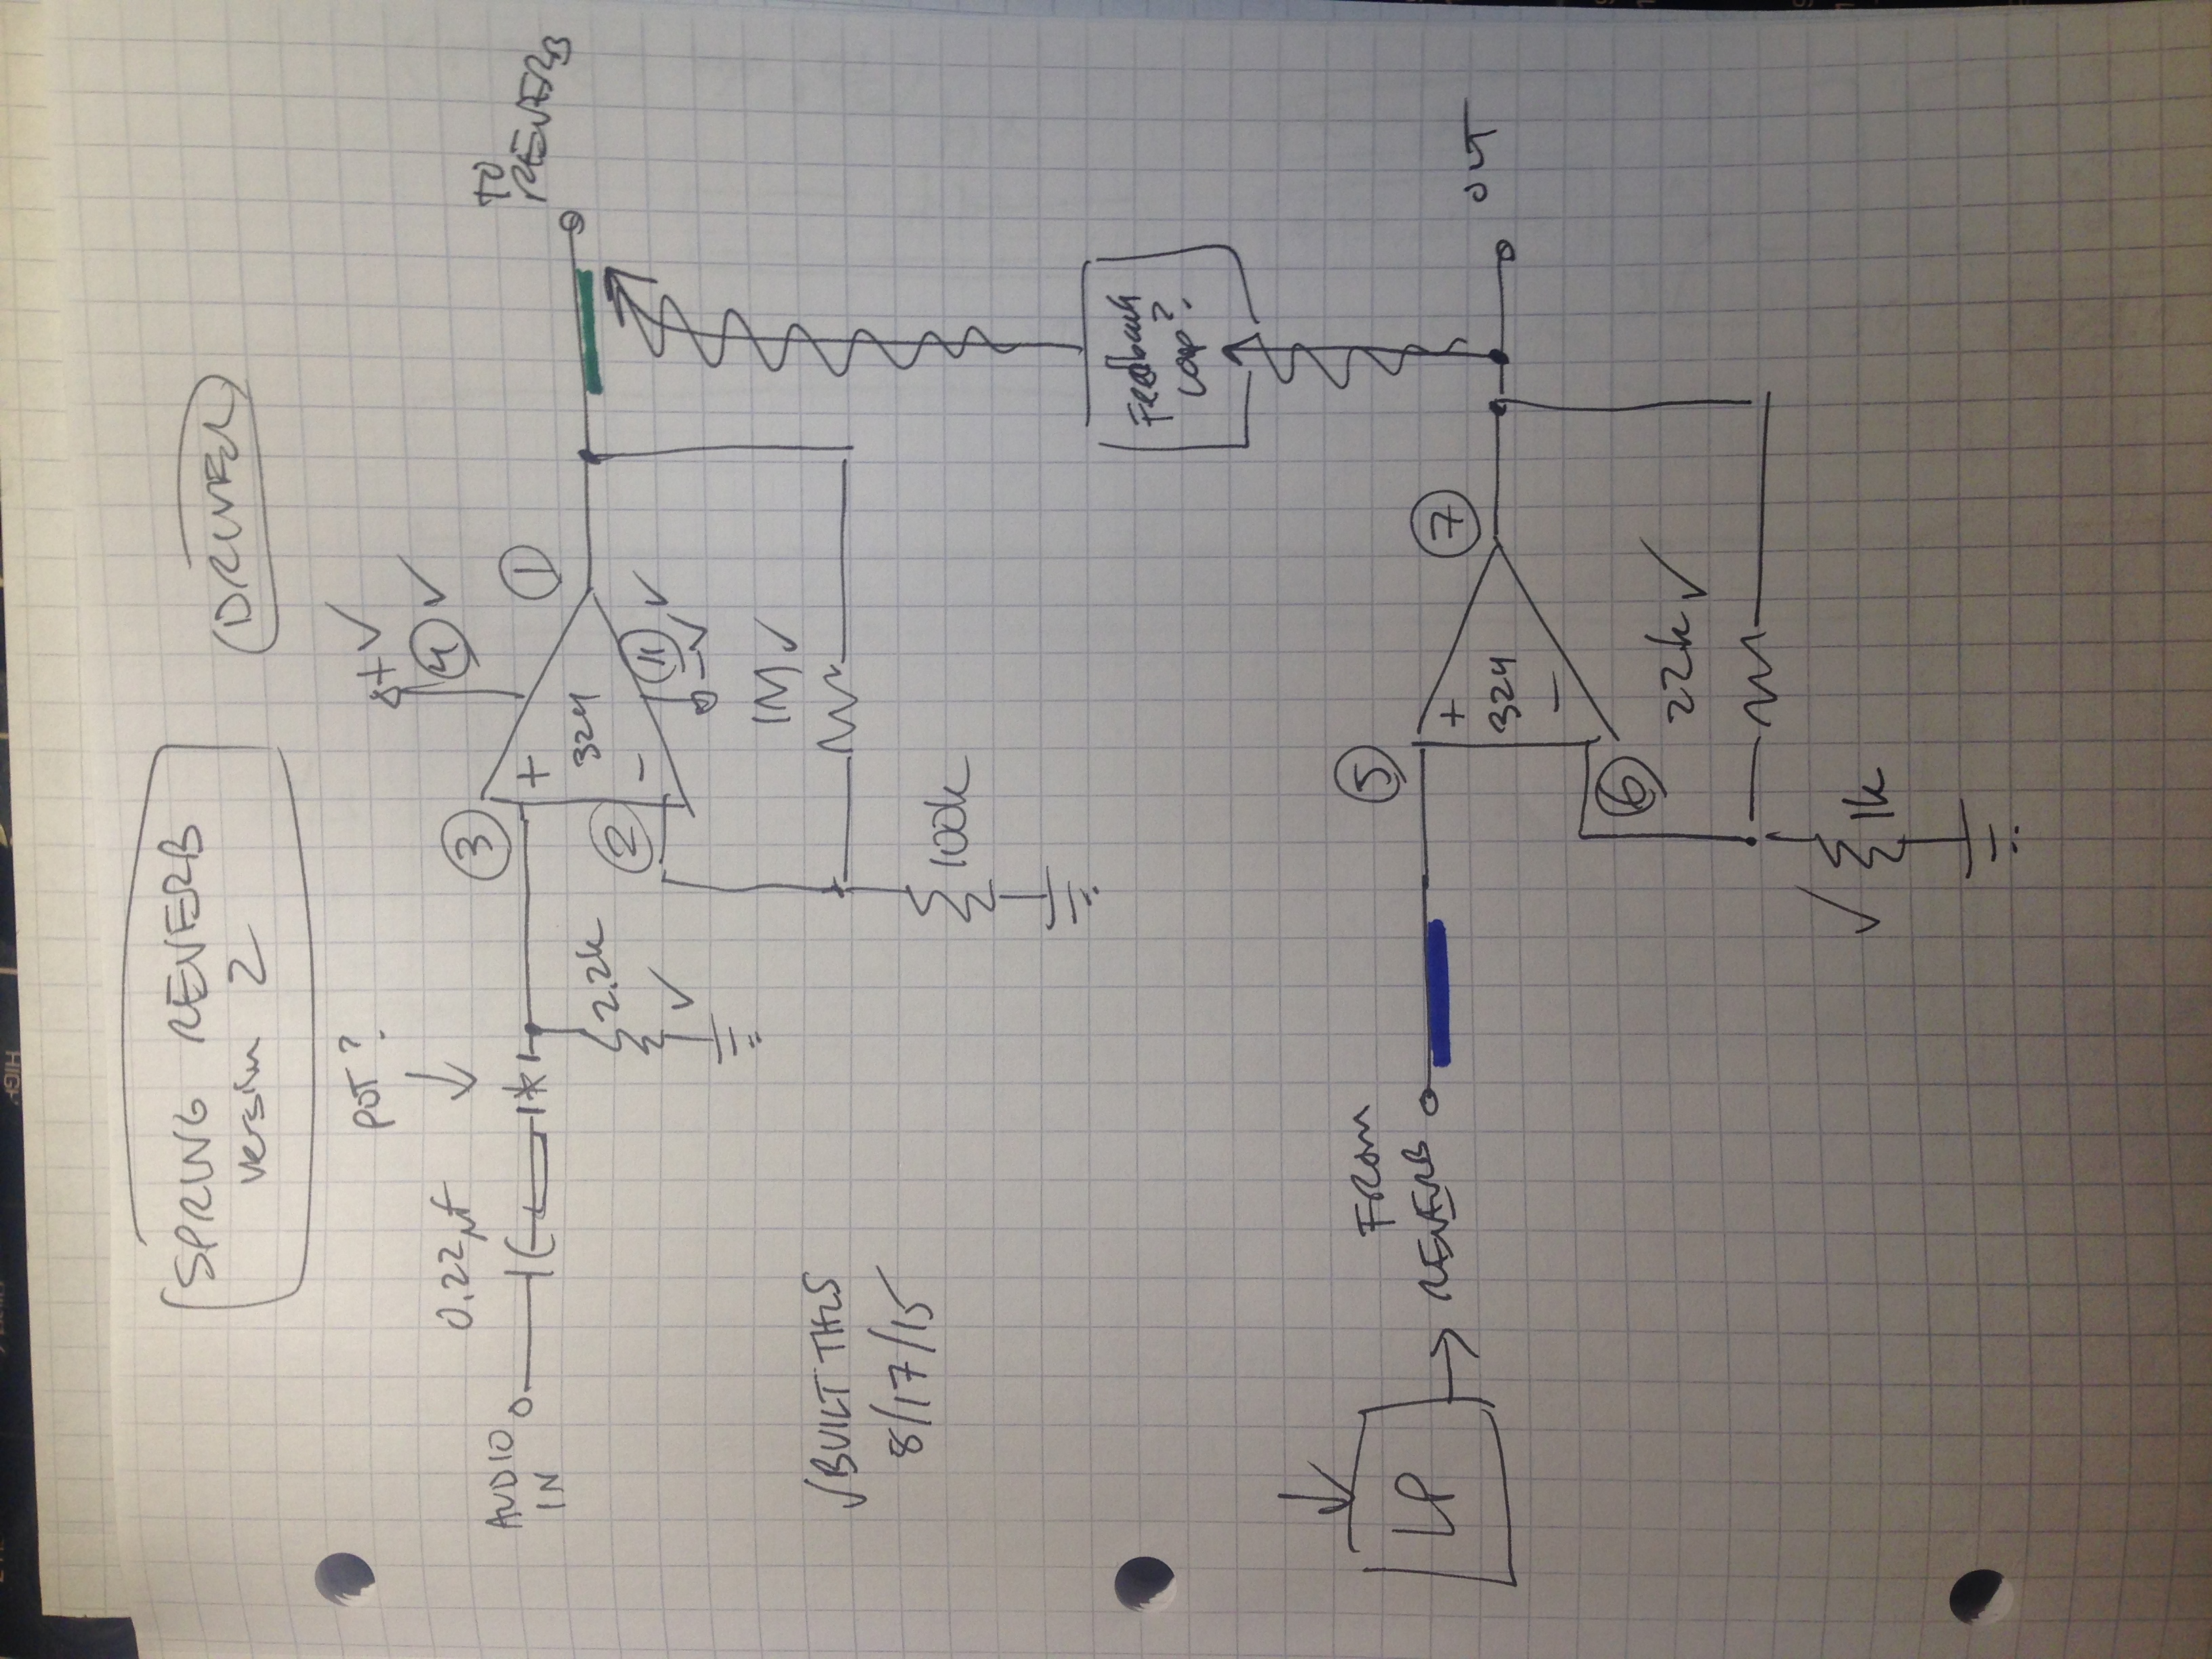 HIGH
SPRING REVERB
version 2
DRIVER
POT?
+
④
0.22µF
③
①
TO
REVERB
AUDIO
IN
+
324
2.2k
②
-
⑪
-
1M
√BUILT THIS
8/17/15
100k
Feedback
Loop?
LP
FROM
REVERB
⑤
+
⑦
324
OUT
-
⑥
22k
1k